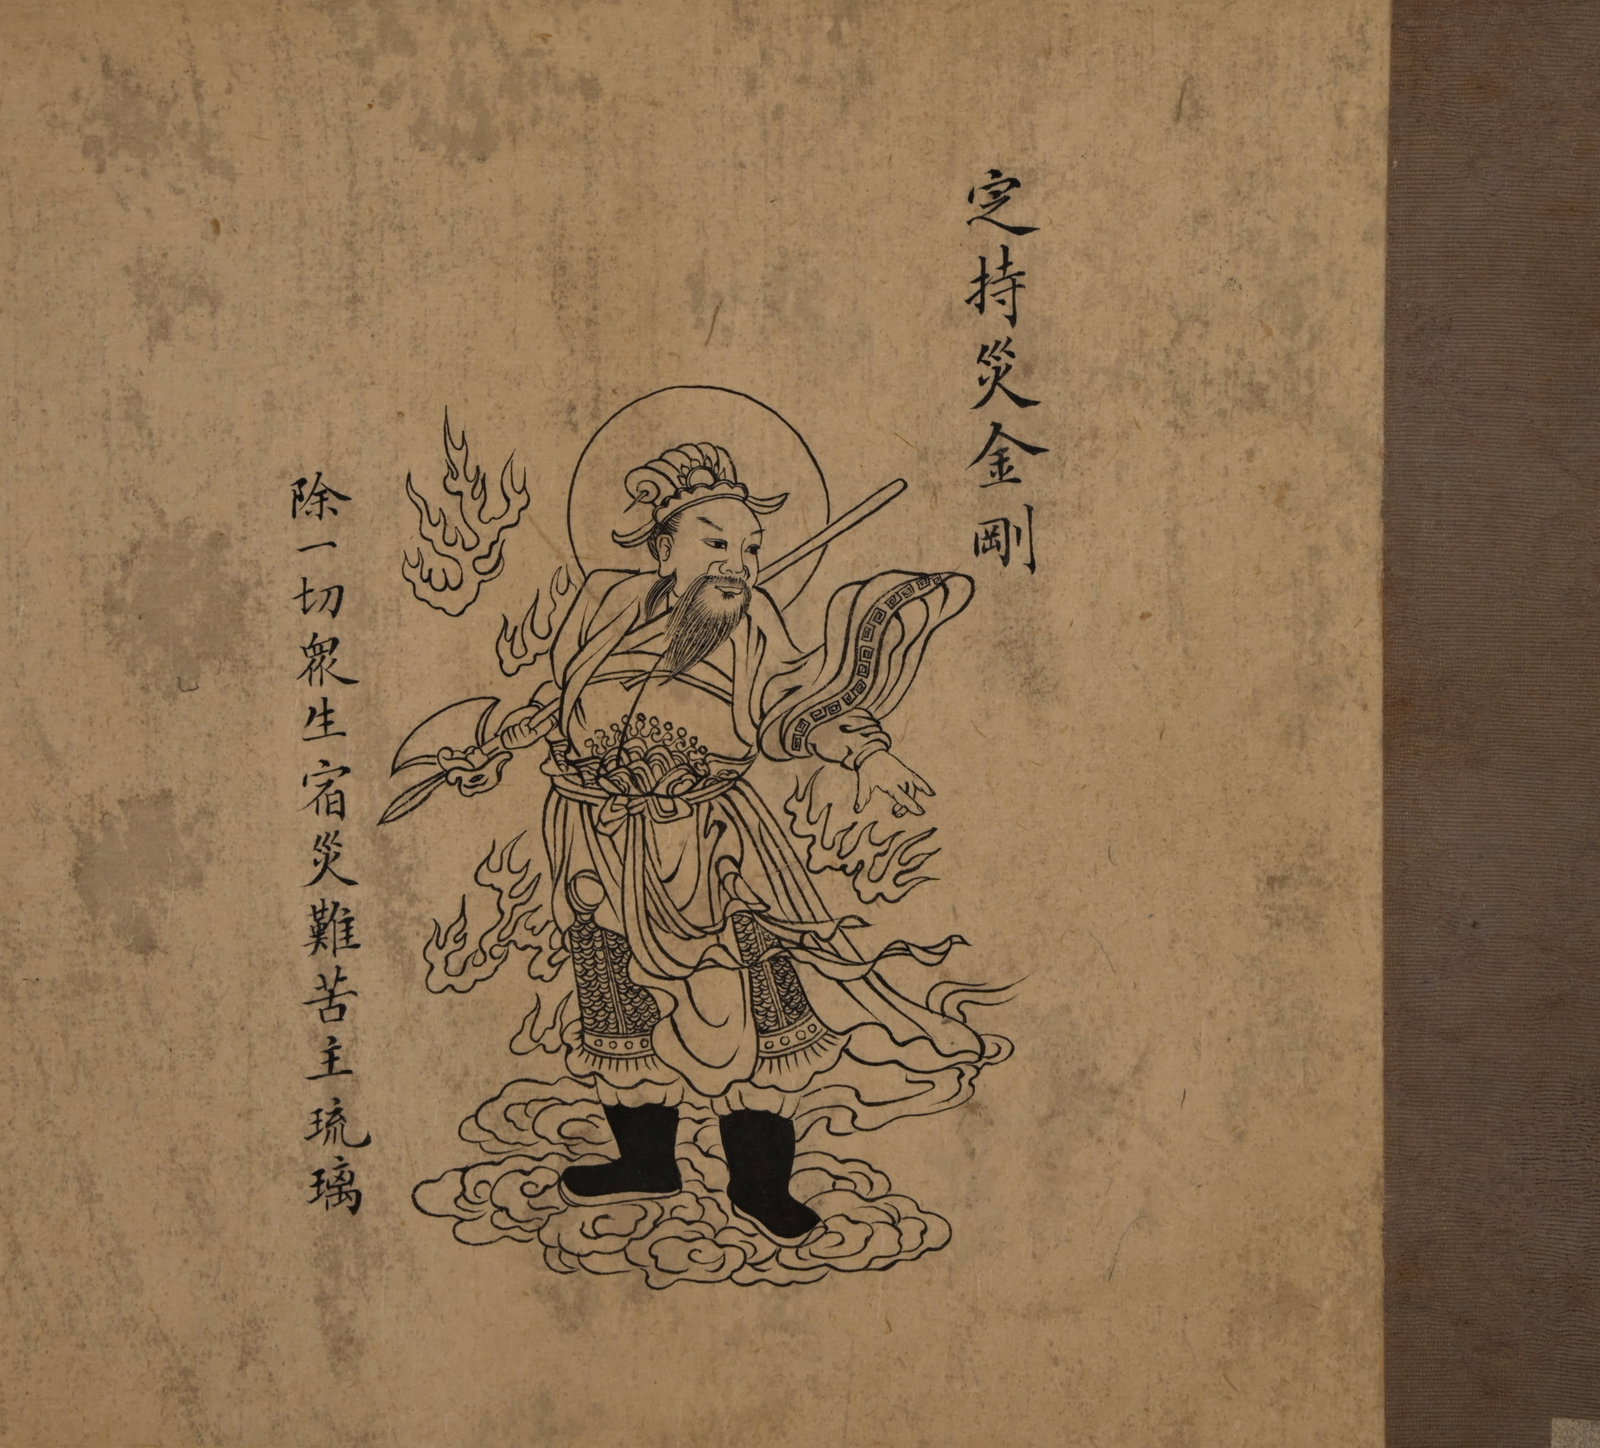 定持災金剛
除一切眾生宿災難苦主琉璃